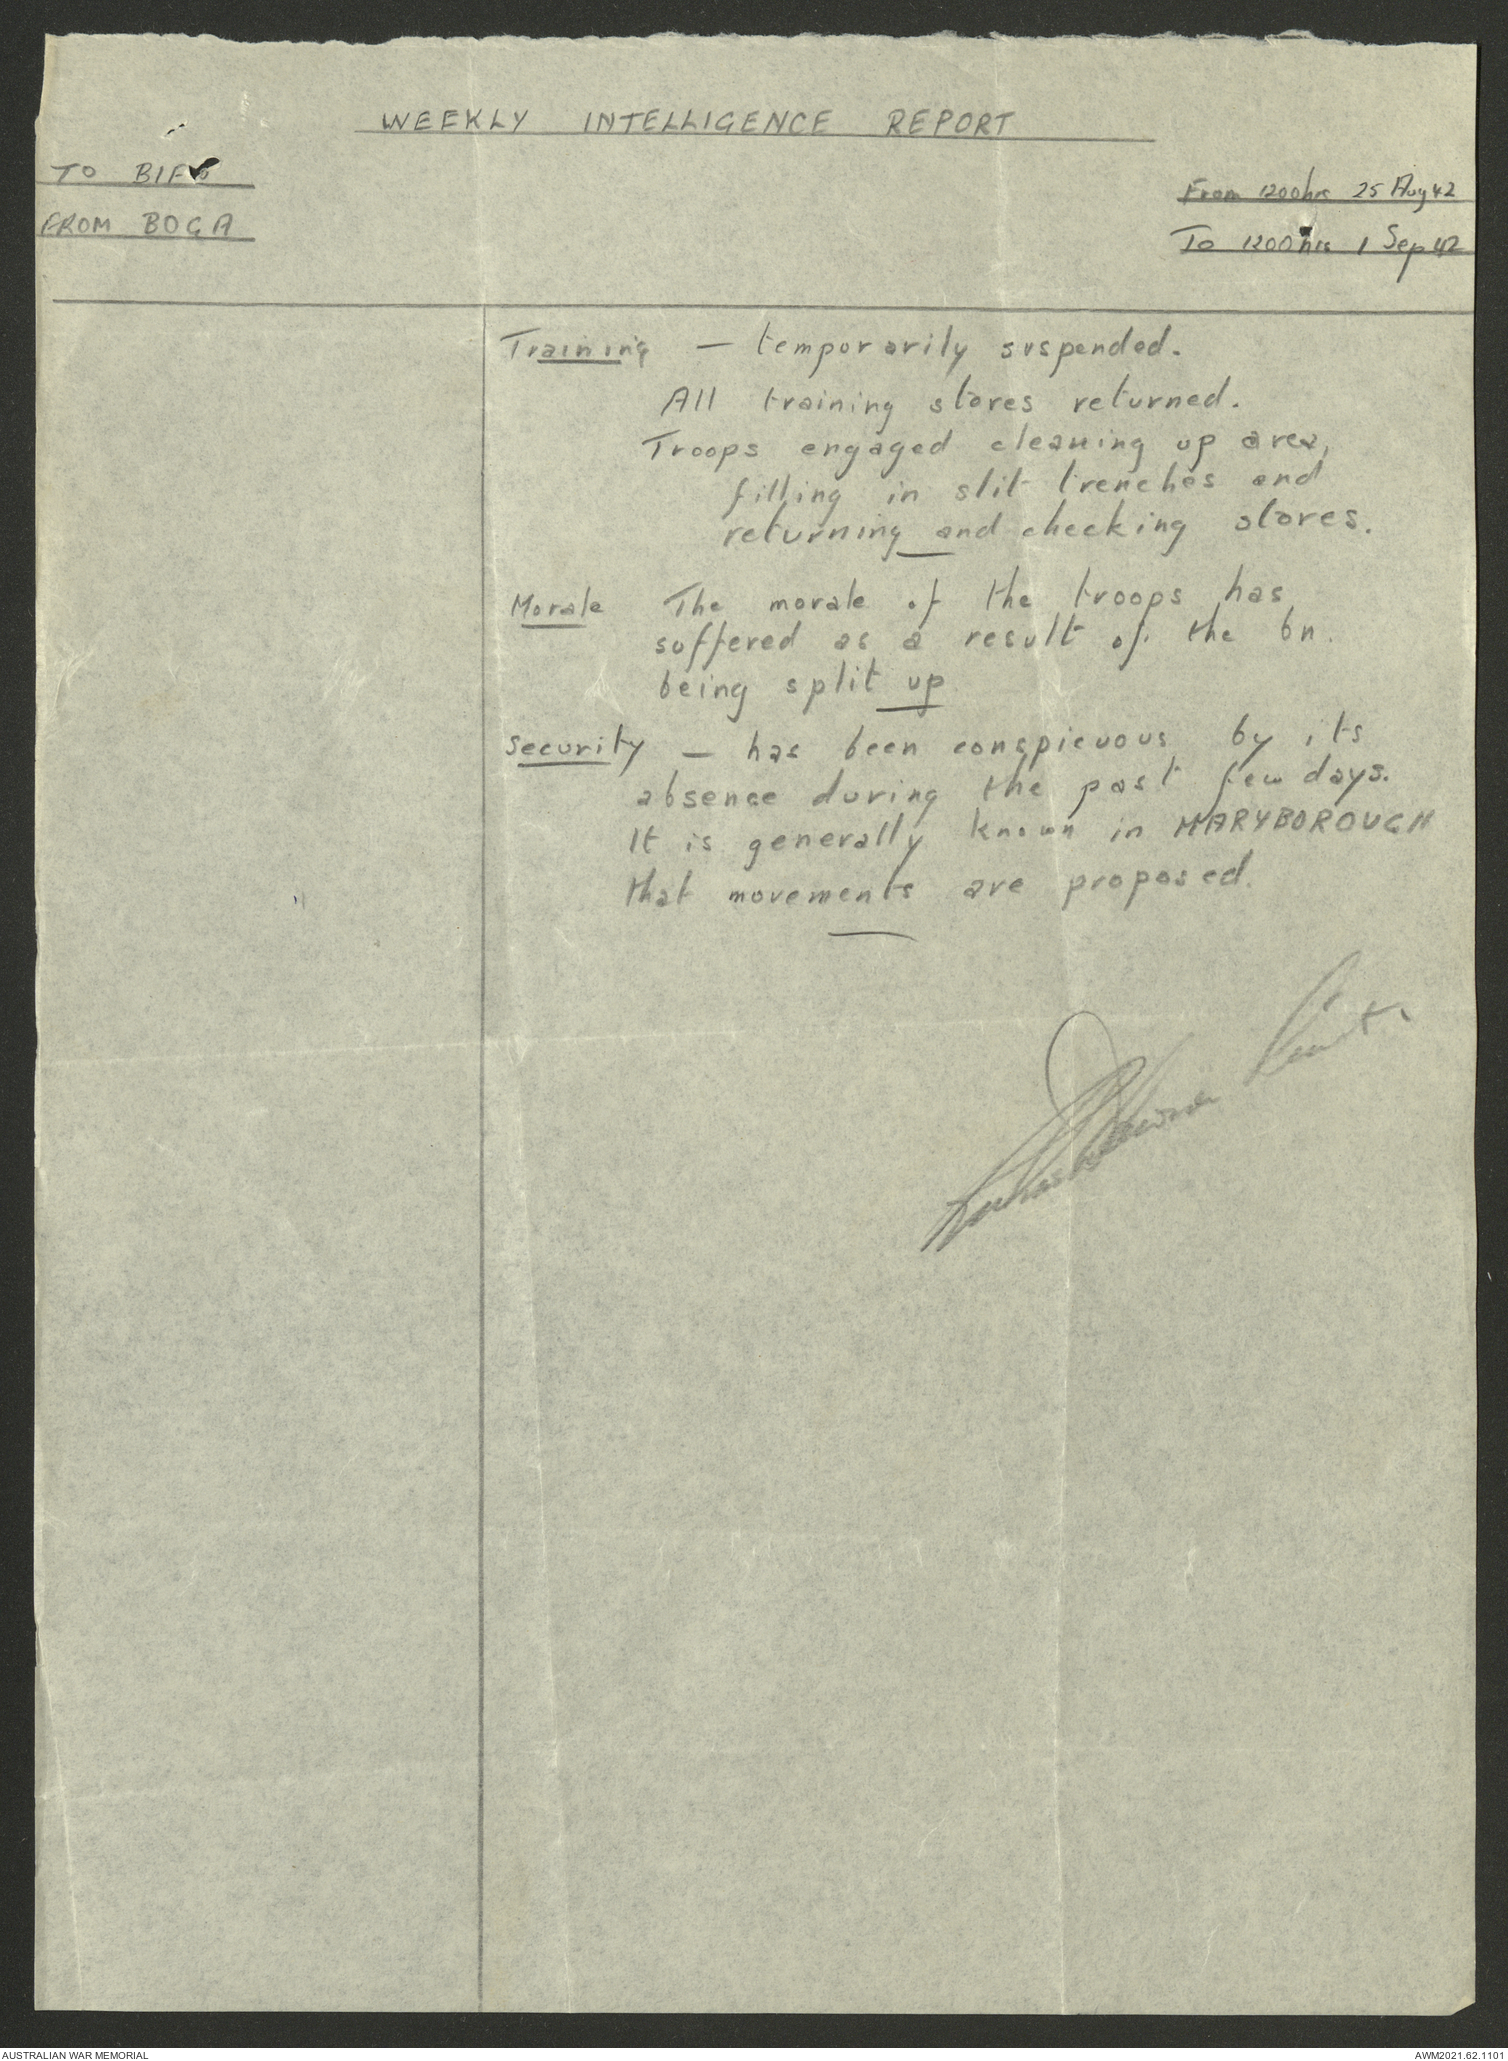 WEEKLY INTELLIGENCE REPORT
TO BIFO
FROM BOGA
From 1200hrs 25 Aug 42
To 1200hrs 1 Sep 42
Training — temporarily suspended.
All training stores returned.
Troops engaged cleaning up area,
filling in slit trenches and
returning and checking stores.
Morale The morale of the troops has
suffered as a result of the bn.
being split up
Security — has been conspicuous by its
absence during the past few days.
It is generally known in MARYBOROUGH
that movements are proposed.
Lieut.
AUSTRALIAN WAR MEMORIAL
AWM2021.62.1101